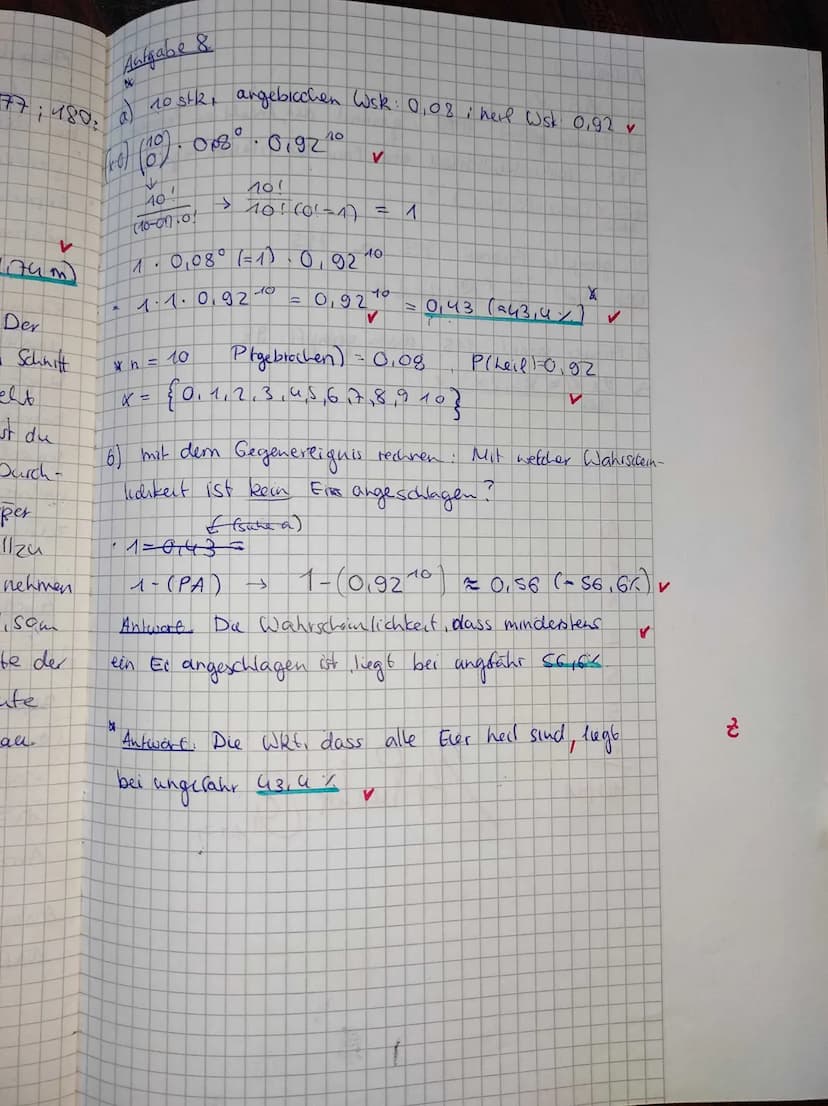 77 ; 180:
1,74 m)
Der
Schnitt
st du
Durch-
per
llzu
nehmen
te der
au.
Aufgabe 8
*
a) 10 stk, angebrochen Wsk: 0,08 ; heil Wsk 0,92 ✓
(10 0) · 0,08⁰ · 0,92¹⁰ ✓
↓
10! / (10-0)! · 0! → 10! / 10! (0!=1) = 1
1 · 0,08⁰ (=1) · 0,92¹⁰
= 1 · 1 · 0,92¹⁰ = 0,92¹⁰ = 0,43 (≈43,4%) * ✓
* n = 10 P(gebrochen) = 0,08 P(heil)=0,92
x = {0, 1, 2, 3, 4, 5, 6, 7, 8, 9 10} ✓
b) mit dem Gegenereignis rechnen: Mit welcher Wahrschein-
lichkeit ist kein Ei angeschlagen?
(siehe a)
· 1 = 0,43 =
1-(PA) → 1-(0,92¹⁰) ≈ 0,56 (= 56,6%) ✓
Antwort Die Wahrscheinlichkeit, dass mindestens ✓
ein Ei angeschlagen ist, liegt bei ungfähr 56,6%
* Antwort. Die Wkt, dass alle Eier heil sind, liegt
bei ungefähr 43,4% ✓